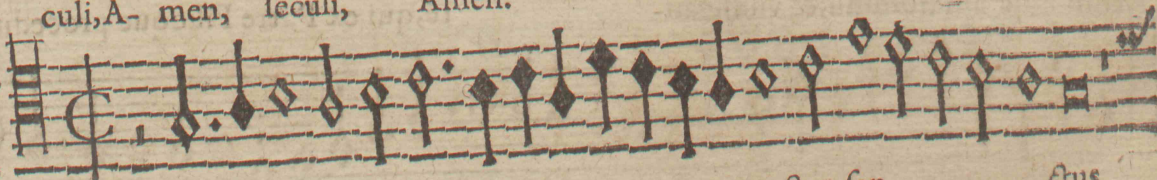 culi, A- men, seculi, Amen.
ctus